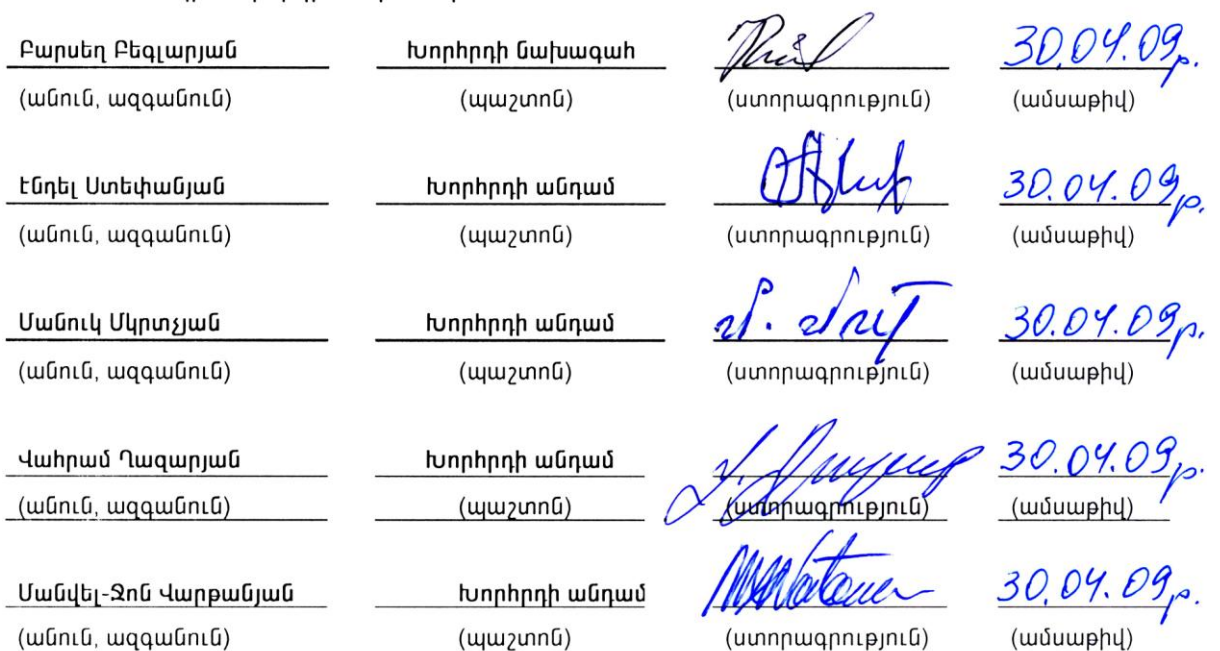 Բարսեղ Բեգլարյան Խորհրդի նախագահ 30.04.09թ.
(անուն, ազգանուն) (պաշտոն) (ստորագրություն) (ամսաթիվ)
Էնդել Ստեփանյան Խորհրդի անդամ 30.04.09թ.
(անուն, ազգանուն) (պաշտոն) (ստորագրություն) (ամսաթիվ)
Մանուկ Մկրտչյան Խորհրդի անդամ 30.04.09թ.
(անուն, ազգանուն) (պաշտոն) (ստորագրություն) (ամսաթիվ)
Վահրամ Ղազարյան Խորհրդի անդամ 30.04.09թ.
(անուն, ազգանուն) (պաշտոն) (ստորագրություն) (ամսաթիվ)
Մանվել-Ջոն Վարթանյան Խորհրդի անդամ 30.04.09թ.
(անուն, ազգանուն) (պաշտոն) (ստորագրություն) (ամսաթիվ)